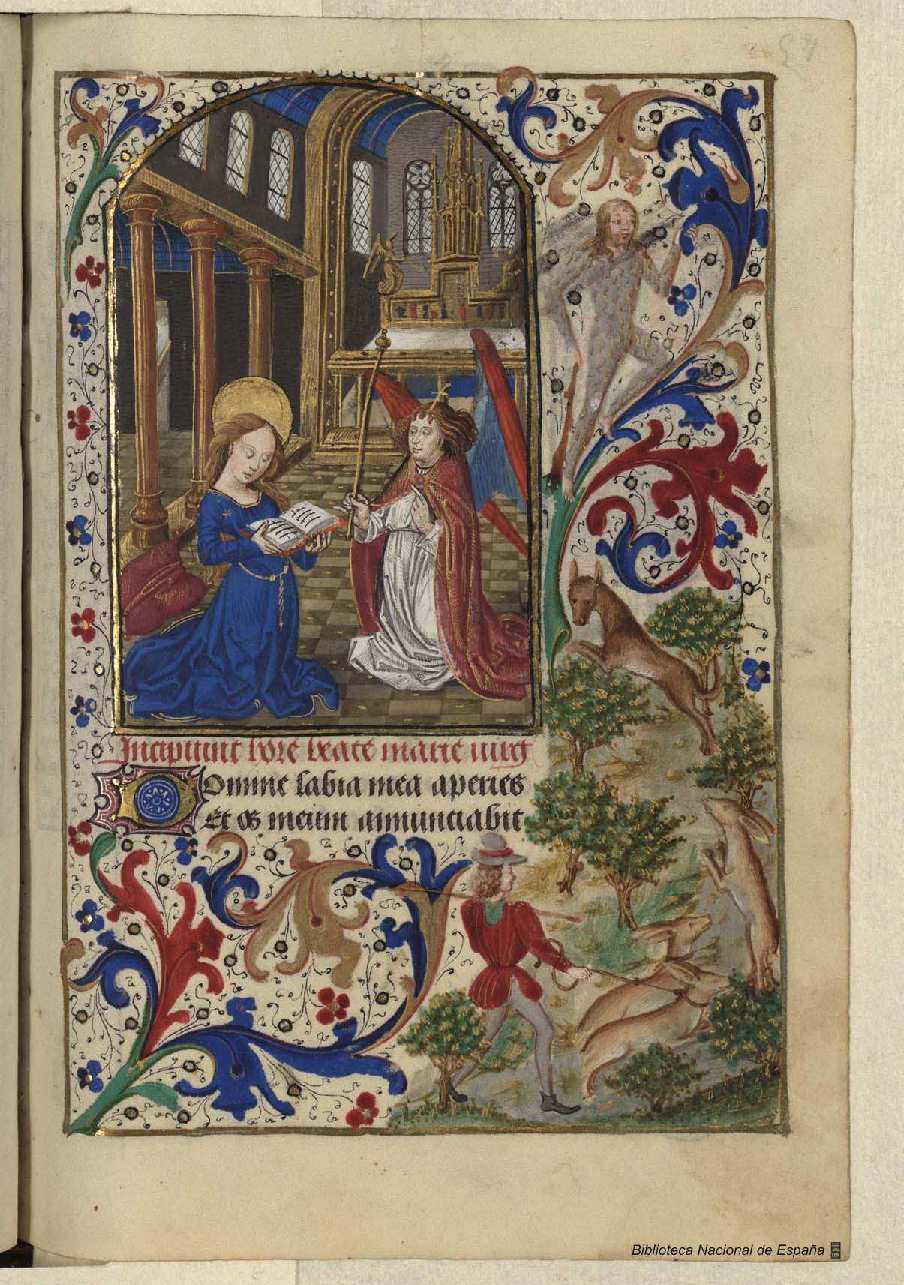 Incipiunt hore beate marie virg
Domine labia mea aperies
Et os meum annunciabit
Biblioteca Nacional de España